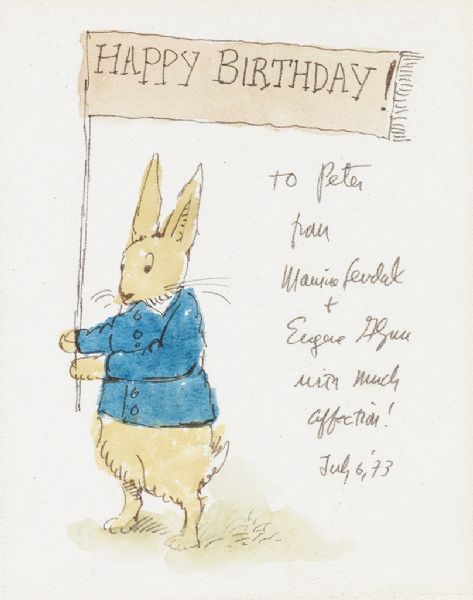 HAPPY BIRTHDAY!
to Peter
from
Maurice Sendak
+
Eugene Glynn
with much
affection!
July 6, '73